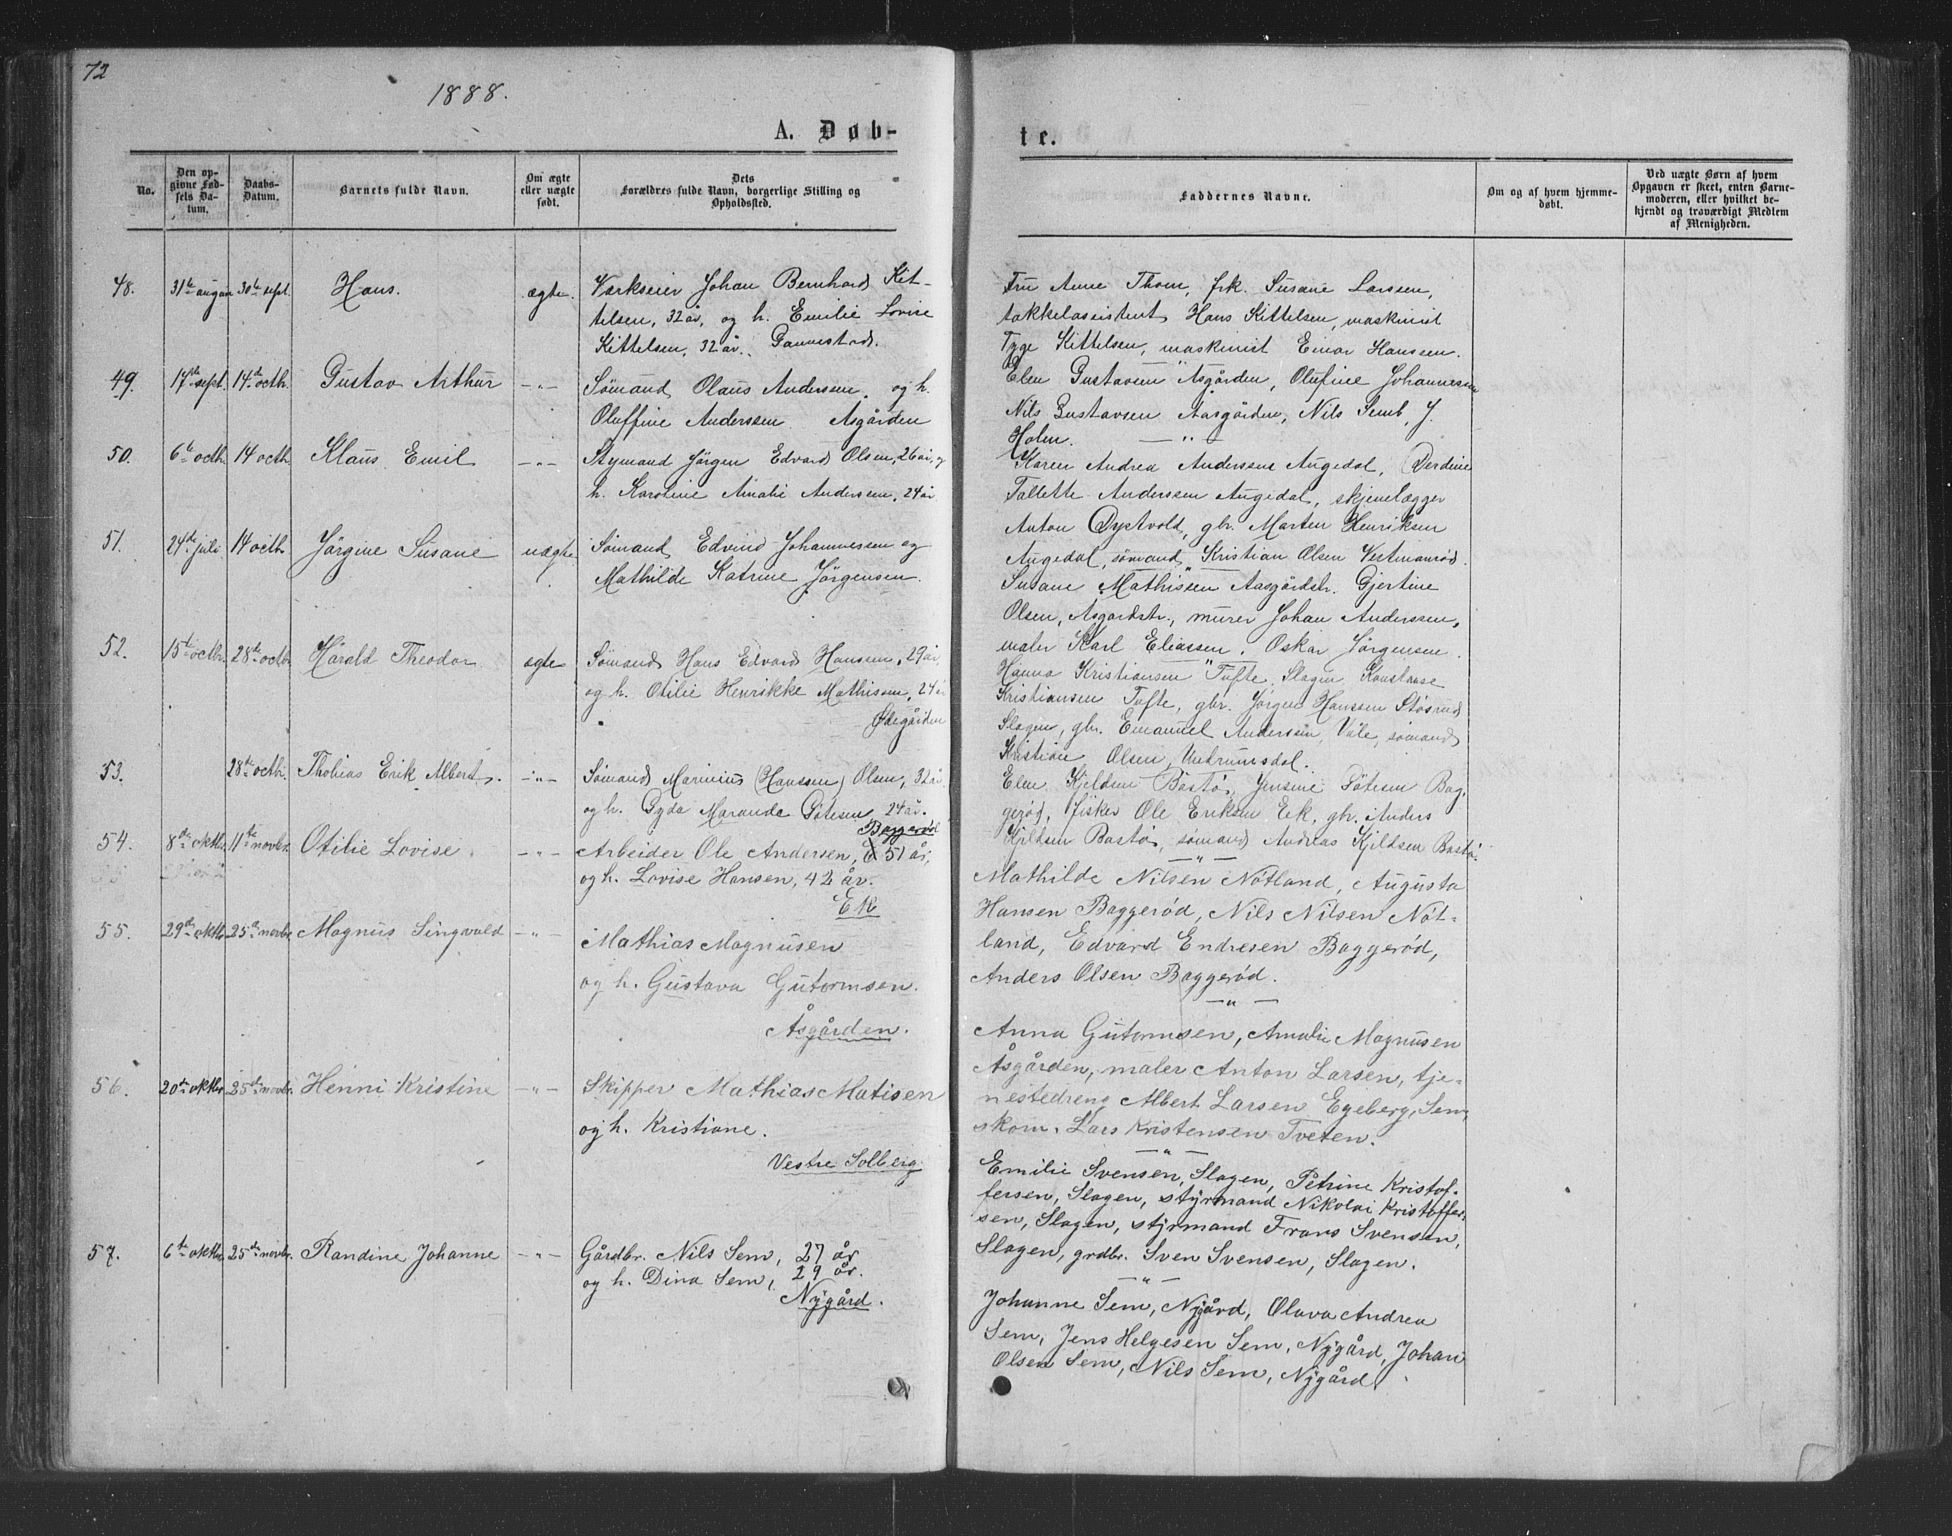 72
1888.
A. Døb-
te.
No.
Den op-
givne Fød-
sels Da-
tum.
Daabs-
Datum.
Barnets fulde Navn.
Om ægte
eller uægte
født.
Dets
Forældres fulde Navn, borgerlige Stilling og
Opholdssted.
Faddernes Navne.
Om og af hvem hjemme-
døbt.
Ved uægte Børn af hvem
Opgaven er skeet, enten Barne-
moderen, eller hvilket be-
kjendt og troværdigt Medlem
af Menigheden.
48. 31te august 30te sept. Hans. ægte. Værkseier Johan Bernhard Kit-
telsen, 32 år, og h. Emilie Lovise
Kittelsen, 32 år.
49. 17de sept. 14de octb. Gustav Arthur -"- Sømand Olaus Andersen, og h.
Oluffine Anderssen Asgården
50. 6te octb. 14 octb. Klaus Emil -"- Stymand Jörgen Edvard Olsen, 26 år, og
h. Karoline Amalie Andersen, 24 år
51. 24de juli. 14 octb. Jörgine Susane uægte Sömand Edvind Johannesen og
Mathilde Katrine Jörgensen.
52. 15de octbr. 28de octb. Harald Theodor ægte Sömand Hans Edvard Hansen, 29 år,
og h. Otilie Henrikke Mathisen, 24 år
53. 28de octb. Thobias Erik Albert. -"- Sömand Marinius (Hanssen) Olsen, 32 år.
og h. Gyda Maranda Sötesen 24 år.
Baggeröd
54. 8de oktbr. 11te novbr. Otilie Lovise. -"- Arbeider Ole Andersen, 51 år,
og h. Lovise Hansen, 42 år.
Ek
55. 29de oktbr. 25de novbr. Magnus Singvald -"- Mathias Magnusen
og h. Gustava Gutormsen.
Åsgården.
56. 20de oktbr. 25de novbr. Henni Kristine -"- Skipper Mathias Matisen
og h. Kristiane.
Vestre Solberg
57. 6te oktbr. 25de novbr. Randine Johanne -"- Gårdbr. Nils Sem, 27 år
og h. Dina Sem, 29 år.
Nygård.
Fru Anne Thom, frk. Susane Larssen,
takkelassistent Hans Kittelsen, maskinist
Tyge Kittelsen, maskinist Einar Hanssen.
Elen Gustavsen Åsgården, Olufine Johannessen
Nils Gustavsen Aasgården, Nils Semb, J.
Holm. -"-
Karen Andrea Anderssen Augedal,
Tallette Anderssen Augedal, skjenelægger
Anton Oystvold, gbr. Marten Henriksen
Augedal, sömand Kristian Olsen Vestmanröd.
Susane Mathissen Aasgårdstr. Gjertine
Olsen, Asgardstr., murer Johan Anderssen,
maler Karl Eliasen, Oskar Jörgensen.
Hanna Kristiansen Tufte, Slagen Konstanse
Kristiansen Tufte, gbr. Jörgen Hanssen
Slagen, gbr. Emanuel Anderssen, Våle, sömand
Kristian Olsen, Undrumsdal.
Elen Kjeldsen Bastö, Jensine Sötesen Bag-
geröd, fisker Ole Eriksen Eek, gbr. Anders
Kjeldsen Bastö, sömand Andreas Kjeldsen Bastö.
-"-
Mathilde Nilsen Nötland, Augusta
Hansen Baggeröd, Nils Nilsen Nöt-
land, Edvard Endresen Baggeröd,
Anders Olsen Baggeröd.
-"-
Anna Gutormsen, Amalie Magnusen
Åsgården, maler Anton Larsen, tje-
nestedreng Albert Larsen Egeberg, Sem,
skom. Lars Kristensen Tveten.
-"-
Emilie Svensen, Slagen, Petrine Kristof-
fersen, Slagen, styrmand Nikolai Kristoffer-
sen, Slagen, styrmand Frans Svensen,
Slagen, grdbr. Sven Svensen, Slagen.
-"-
Johanne Sem, Nygård, Olava Andrea
Sem, Jens Helgesen Sem, Nygård, Johan
Olsen Sem, Nils Sem, Nygård.